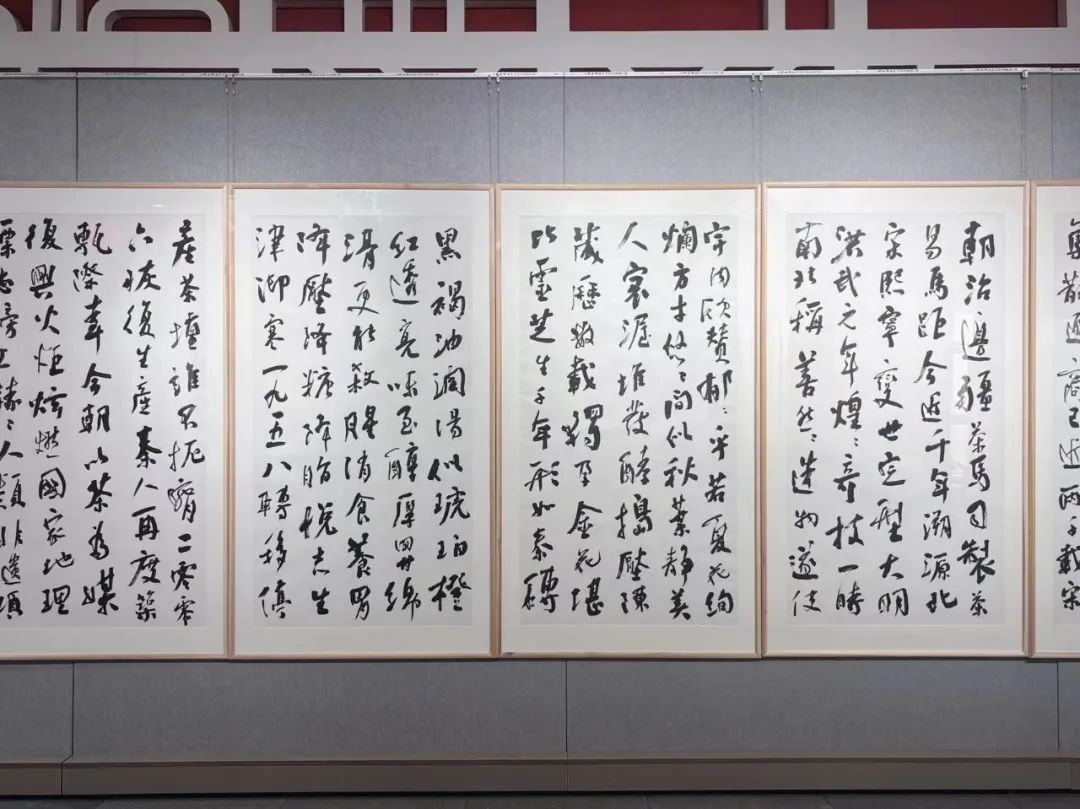 近兩千載宋
朝治邊疆茶馬司製茶
易馬距今近千年溯源北
宋熙寧變世定型大明
洪武之年煌〻奇技一時
南北稱善然〻造物遂使
宇内欣贊郁〻乎若夏花絢
爛方才悠〻間似秋葉静美
人窖渥堆發酵搗壓陳
歲歷數載獨孕金花堪
比靈芝生千年形如秦磚
黑褐油潤湯似琥珀橙
紅透亮味至醇厚回甘綿
滑更能殺腥消食養胃
降壓降糖降脂悦志生
津御寒一九五八轉移停
產茶壇誰不扼腕二零零
六恢復生產秦人再度築
今朝以茶為媒
復興火炬炫燃國家地理
人類非遺項